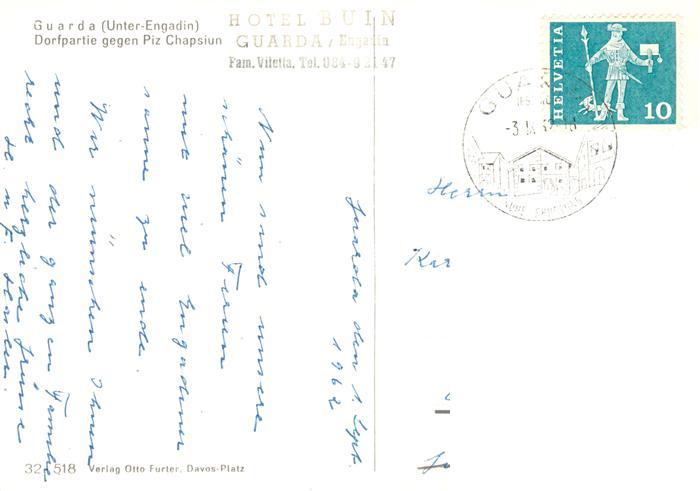 Guarda (Unter-Engadin)
Dorfpartie gegen Piz Chapsiun
HOTEL BUIN
GUARDA / Engadin
Fam. Viletta, Tel. 084-9 21 47
HELVETIA
10
GUARDA
Guarda den 1. Sept.
1962
Nun sind unsere
schönen Ferien
mit viel Engadiner
sonne zu ende.
Wir wünschen Ihnen
und der ganzen Familie
recht herzliche Grüsse
Herrn
Kar
32 518 Verlag Otto Furter, Davos-Platz